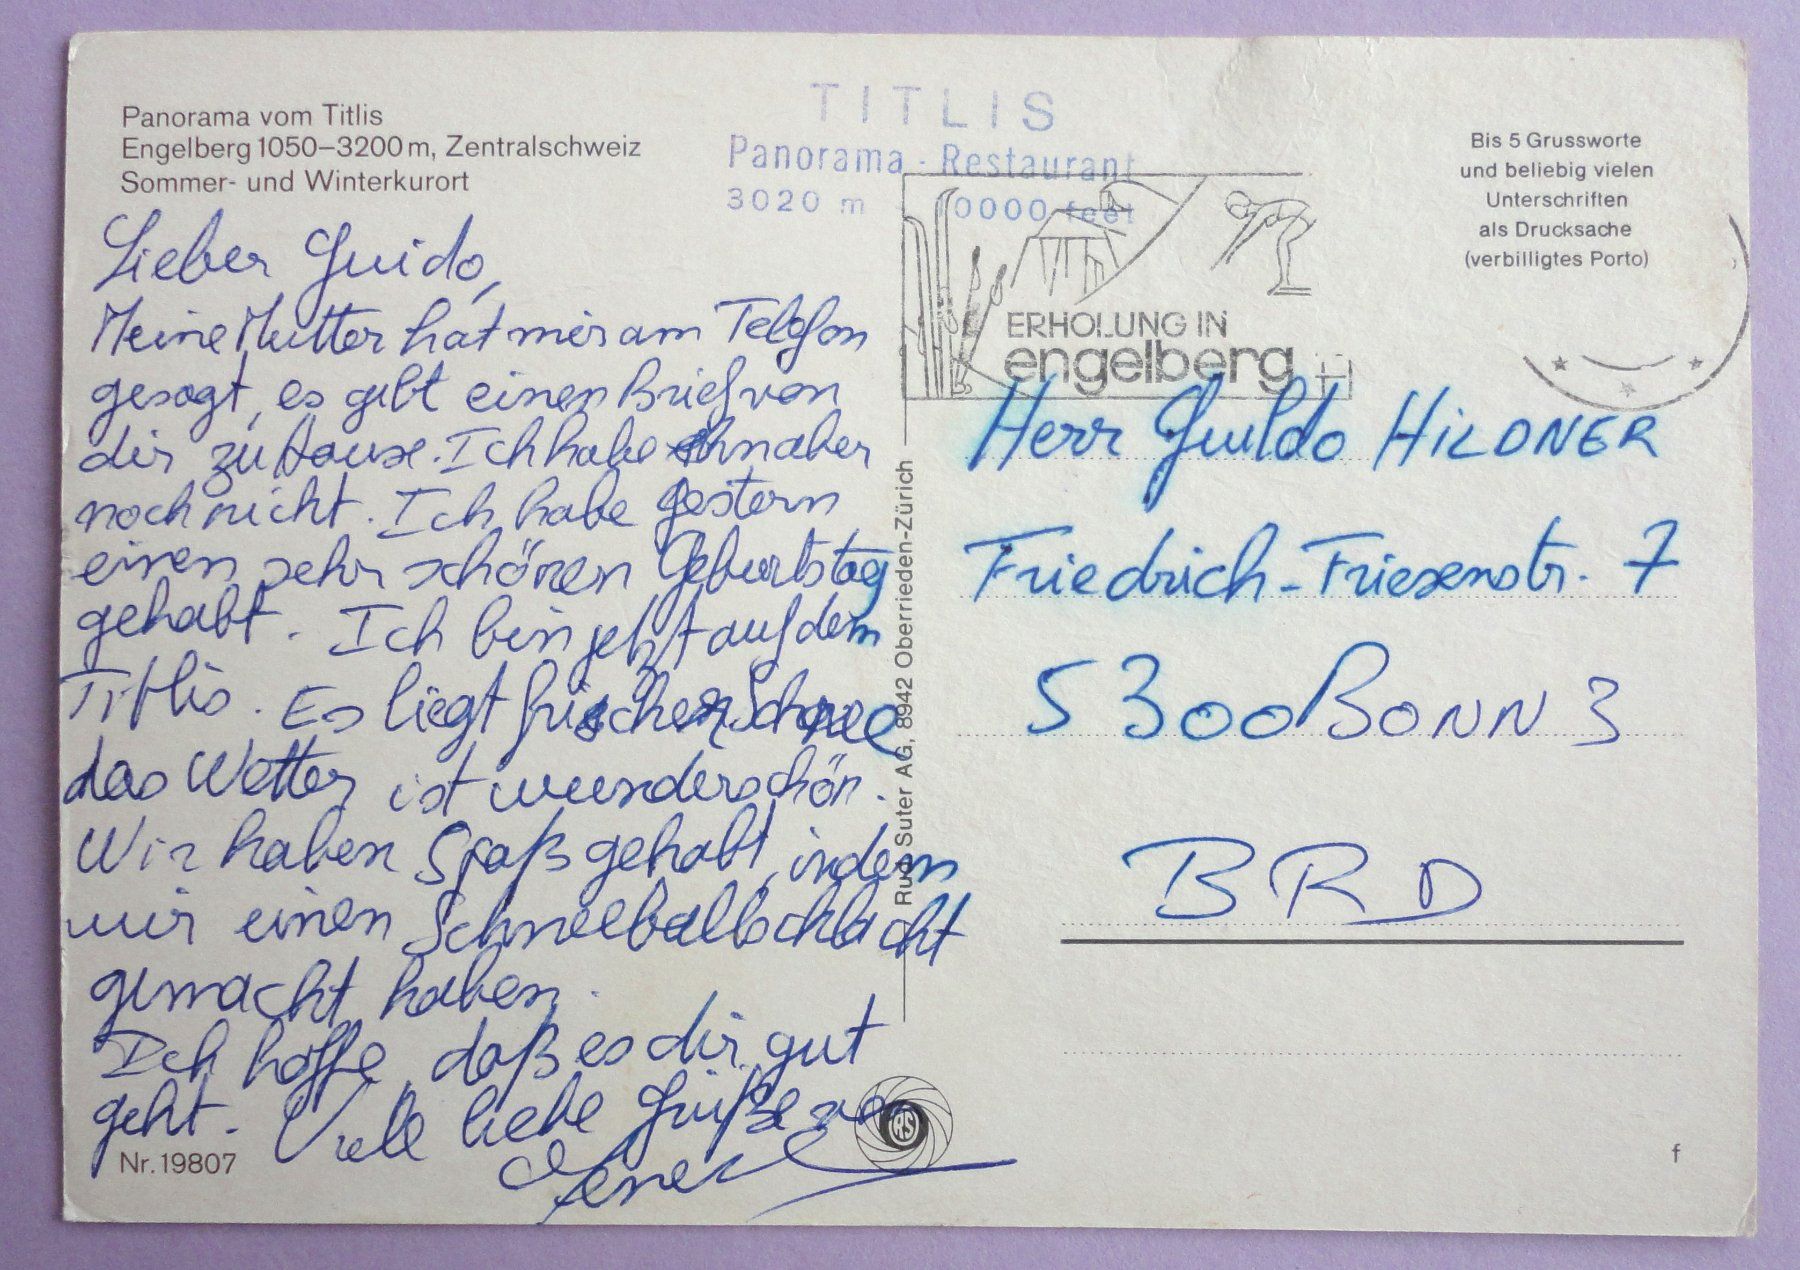 Panorama vom Titlis
Engelberg 1050–3200 m, Zentralschweiz
Sommer- und Winterkurort
TITLIS
Panorama - Restaurant
3020 m 10000 feet
ERHOLUNG IN
engelberg
Bis 5 Grussworte
und beliebig vielen
Unterschriften
als Drucksache
(verbilligtes Porto)
Lieber Guido,
Meine Mutter hat mir am Telefon
gesagt, es gibt einen Brief von
dir zu Hause. Ich habe ihn aber
noch nicht. Ich habe gestern
einen sehr schönen Geburtstag
gehabt. Ich bin jetzt auf dem
Titlis. Es liegt frischer Schnee
das Wetter ist wunderschön.
Wir haben Spaß gehabt, indem
wir einen Schneeballschlacht
gemacht haben.
Ich hoffe, daß es dir gut
geht. Viele liebe Grüße von
Nr. 19807
Rud. Suter AG, 8942 Oberrieden-Zürich
RS
Herr Guido HILDNER
Friedrich-Friesenstr. 7
5300 BONN 3
BRD
f